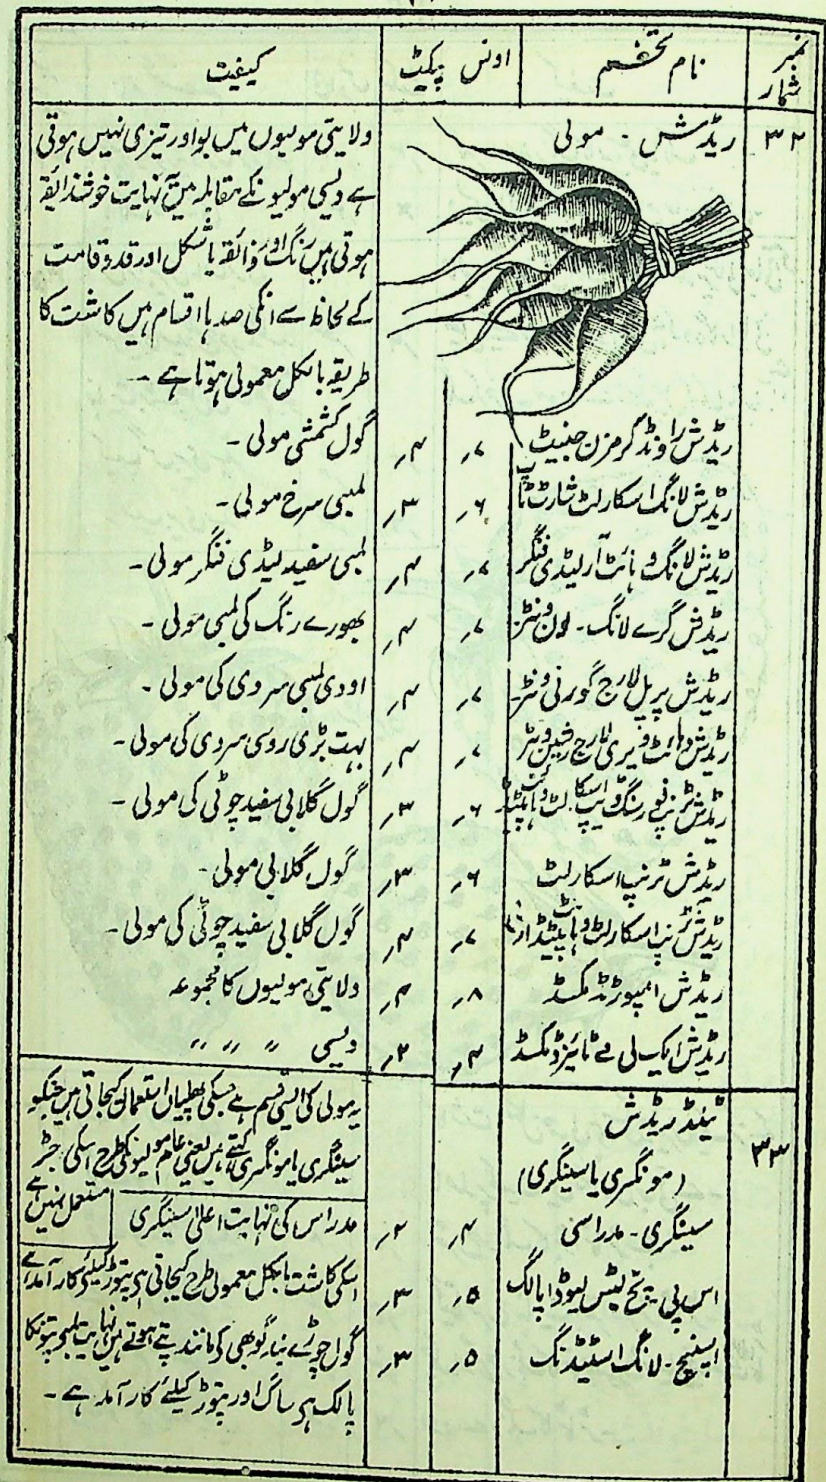 نمبر شمار | نام تخم | اونس | پیکیٹ | کیفیت
۳۲ | ریڈش - مولی
ولایتی مولیوں میں بو اور تیزی نہیں ہوتی
ہے دیسی مولیونکے مقابلہ میں نہایت خوشذائقہ
ہوتی ہیں رنگ اور ذائقہ یا شکل اور قد و قامت
کے لحاظ سے انکی صدہا اقسام ہیں کاشت کا
طریقہ بالکل معمولی ہوتا ہے -
ریڈش راونڈ کرمزن جینیٹ | ۷ر | ۴ر | گول کشمشی مولی -
ریڈش لانگ اسکارلٹ شارٹ ٹاپ | ۶ر | ۳ر | لمبی سرخ مولی -
ریڈش لانگ وہائٹ آر لیڈی فنگر | ۷ر | ۴ر | لمبی سفید لیڈی فنگر مولی -
ریڈش گرے لانگ - ونٹر | ۷ر | ۴ر | بھورے رنگ کی لمبی مولی -
ریڈش پرپل لارج گورنی ونٹر | ۷ر | ۴ر | اودی لمبی سردی کی مولی -
ریڈش وہائٹ ویری لارج رشین ونٹر | ۷ر | ۴ر | بہت بڑی روسی سردی کی مولی -
ریڈش ٹرنپ فورسنگ ڈیپ اسکارلٹ وہائٹ | ۶ر | ۳ر | گول گلابی سفید چوٹی کی مولی -
ریڈش ٹرنپ اسکارلٹ | ۶ر | ۳ر | گول گلابی مولی -
ریڈش ٹرنپ اسکارلٹ وہائٹ | ۷ر | ۴ر | گول گلابی سفید چوٹی کی مولی -
ریڈش امپورٹڈ مکسڈ | ۸ر | ۴ر | ولایتی مولیوں کا مجموعہ
ریڈش ایک لی مے ٹائیزڈ مکسڈ | ۴ر | ۲ر | دیسی 〃 〃 〃
۳۳ | ریڈش
(مونگری یا سینگری)
یہ مولی کی ایسی قسم ہے جسکی پھلیاں استعمال کیجاتی ہیں جنکو
سینگری یا مونگری کہتے ہیں یعنی عام مولیونکی طرح اسکی جڑ
مستعمل نہیں ہے
سینگری - مدراسی | ۴ر | ۲ر | مدراس کی نہایت اعلیٰ سینگری
اس پی نچ بٹس لیوڈ پالگ | ۵ر | ۳ر | اسکی کاشت بالکل معمولی طرح کیجاتی ہے
اسپنچ - لانگ اسٹینڈنگ | ۵ر | ۳ر | گول چوڑے گوبھی کی مانند پتے ہوتے ہیں نہایت لمبے پتونکا
پالک ہے ساگ اور پتوڑ کیلئے کار آمد ہے -